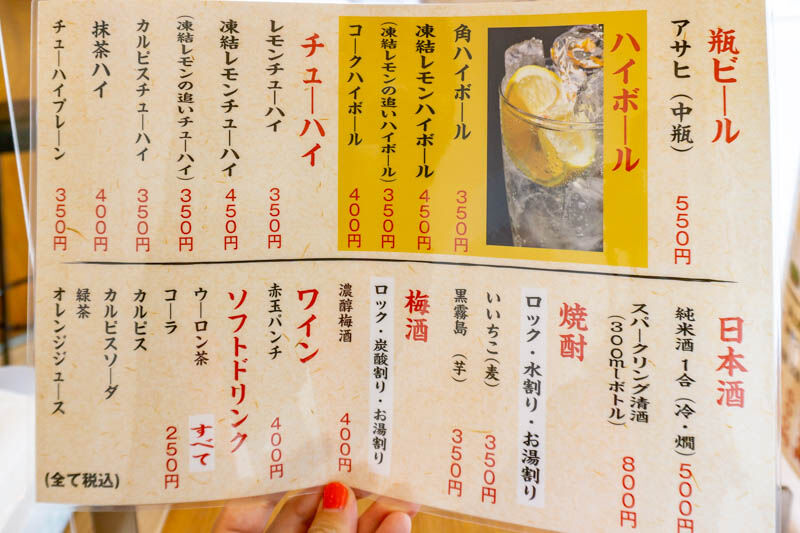 瓶ビール
アサヒ(中瓶) 550円
ハイボール
角ハイボール 350円
凍結レモンハイボール 450円
(凍結レモンの追いハイボール) 350円
コークハイボール 400円
チューハイ
レモンチューハイ 350円
凍結レモンチューハイ 450円
(凍結レモンの追いチューハイ) 350円
カルピスチューハイ 350円
抹茶ハイ 400円
チューハイプレーン 350円
日本酒
純米酒1合(冷・燗) 500円
スパークリング清酒
(300mlボトル) 800円
焼酎
ロック・水割り・お湯割り
いいちこ(麦) 350円
黒霧島(芋) 350円
梅酒
ロック・炭酸割り・お湯割り
濃醇梅酒 400円
ワイン
赤玉パンチ 400円
ソフトドリンク
すべて
250円
ウーロン茶
コーラ
カルピス
カルピスソーダ
緑茶
オレンジジュース
(全て税込)